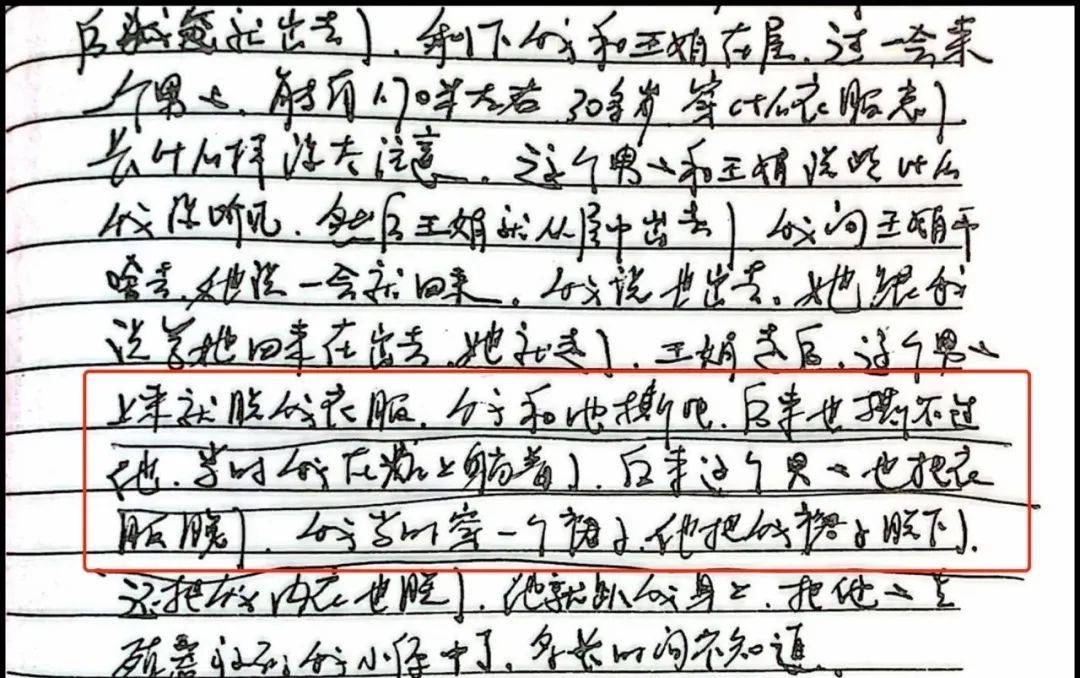 后就出去了,剩下我和王娟在屋,过一会来
一个男人,能有1.70米左右 30多岁 穿什么衣服忘了
长什么样没太注意,这个男人和王娟说些什么
我没听见,然后王娟就从屋中出去了 我问王娟干
啥去,她说一会就回来,我说也出去,她跟我
说等她回来在出去,她就走了,王娟走后,这个男人
上来就脱我衣服,我和他撕吧,后来也撕不过
他,当时我在炕上躺着了,后来这个男人也把衣
服脱了,我当时穿一个裙子,他把我裙子脱下了,
还把我内衣也脱了,他就趴我身上,把他人生
殖器放到我小便中了,多长时间不知道